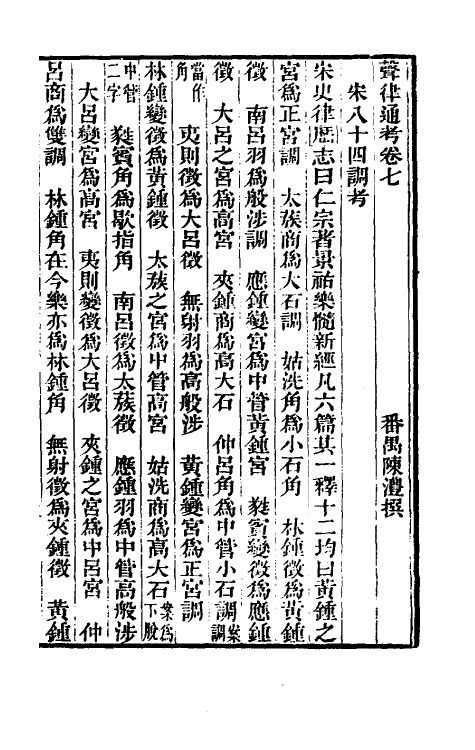 聲律通考卷七
番禺陳澧撰
宋八十四調考
宋史律厯志曰仁宗著景祐樂髓新經凡六篇其一釋十二均曰黃鍾之
宮為正宮調　太蔟商為大石調　姑洗角為小石角　林鍾徵為黃鍾
徵　南呂羽為般涉調　應鍾變宮為中管黃鍾宮　蕤賓變徵為應鍾
徵　大呂之宮為高宮　夾鍾商為高大石　仲呂角為中管小石調案調
當作角　夷則徵為大呂徵　無射羽為高般涉　黃鍾變宮為正宮調
林鍾變徵為黃鍾徵　太蔟之宮為中管高宮　姑洗商為高大石案為下脫
中管二字　蕤賓角為歇指角　南呂徵為太蔟徵　應鍾羽為中管高般涉
大呂變宮為高宮　夷則變徵為大呂徵　夾鍾之宮為中呂宮　仲
呂商為雙調　林鍾角在今樂亦為林鍾角　無射徵為夾鍾徵　黃鍾